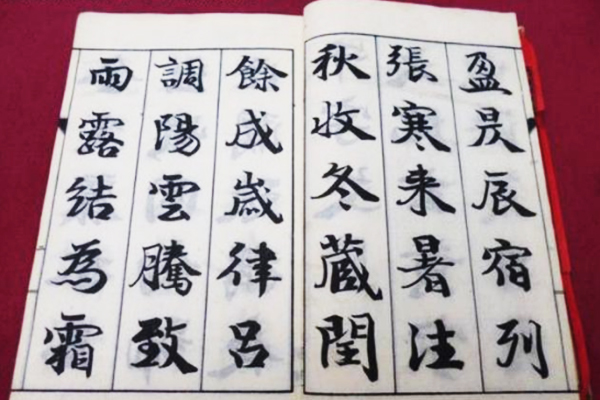 盈昃辰宿列
張寒来暑往
秋收冬藏閏
餘成歲律呂
調陽雲騰致
雨露結為霜